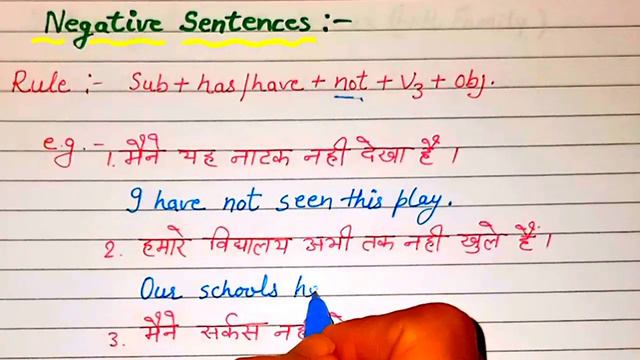 Negative Sentences :-
Rule :- Sub + has/have + not + V3 + Obj.
e.g. - 1. मैंने यह नाटक नही देखा है ।
I have not seen this play.
2. हमारे विद्यालय अभी तक नही खुले हैं।
Our schools
3. मैंने सर्कस